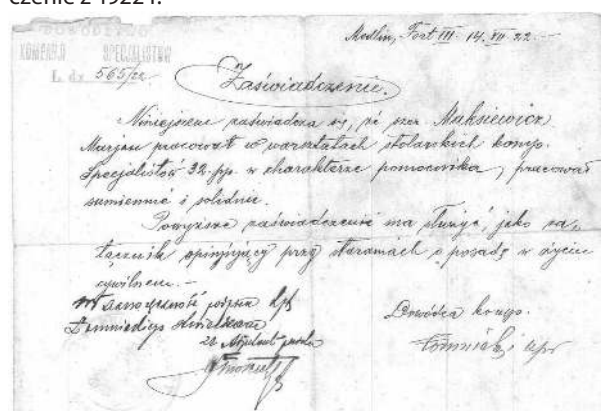 czenie z 1922 r.
DOWÓDZTWO
KOMPANJI SPECJALISTÓW
L. dz. 565/22.
Modlin, Fort III. 14. VII. 22.
Zaświadczenie.
Niniejszem zaświadcza się, że szer. Maksiewicz
Marjan pracował w warsztatach stolarskich komp.
Specjalistów 32. pp. w charakterze pomocnika, pracował
sumiennie i solidnie.
Powyższe zaświadczenie ma służyć, jako za-
łącznik opinjujący przy staraniach o posadę w życiu
cywilnem. -
własnoręczność podpisu
Dowódca komp.
za Adjutant pułku